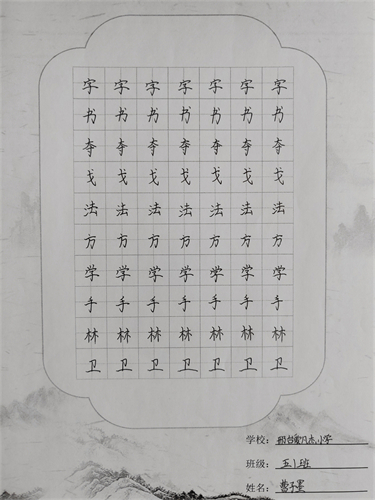 字字字字字字字
书书书书书书书
夺夺夺夺夺夺夺
戈戈戈戈戈戈戈
法法法法法法法
方方方方方方方
学学学学学学学
手手手手手手手
林林林林林林林
卫卫卫卫卫卫卫
学校：
班级：五1班
姓名：